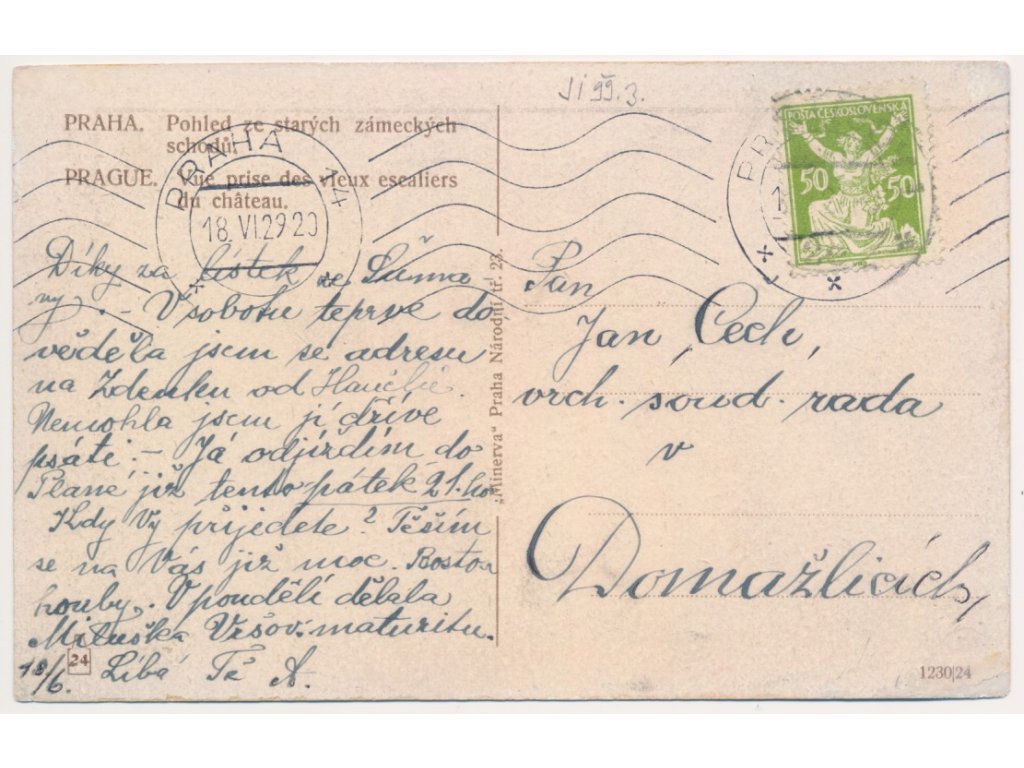 Ji 99.3.
PRAHA. Pohled ze starých zámeckých
schodů.
PRAGUE. Vue prise des vieux escaliers
du château.
PRAHA
18.VI.29 20
POŠTA ČESKOSLOVENSKÁ
50 50
Díky za lístek ze Šuma
vy. - V sobotu teprve do
věděla jsem se adresu
na Zdenku od
Nemohla jsem jí dříve
psáti. - Já odjíždím do
Plané již tento pátek 21. ho
Kdy Vy přijedete? Těším
se na Vás již moc. Rostou
houby. V pondělí dělala
Miluška Vršov. maturitu.
18/6. Líbá Tě A.
24
„Minerva" Praha Národní tř. 23.
Pan
Jan Čech,
vrch. soud. rada
v
Domažlicích,
1230|24